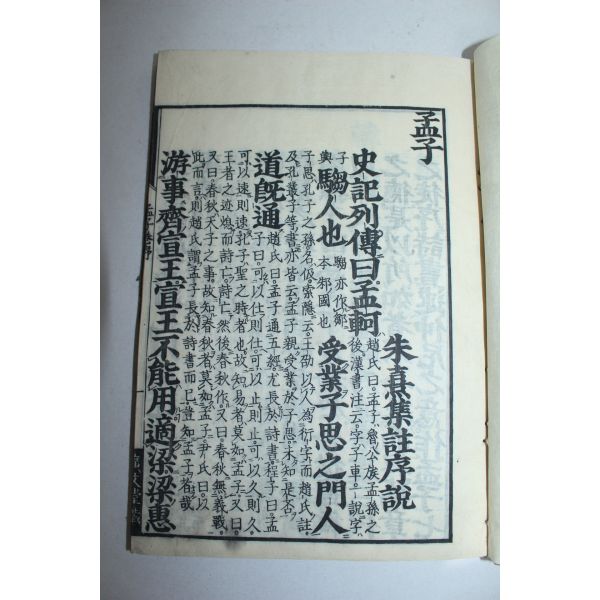 孟子
朱熹集註序說
史記列傳曰孟軻
趙氏曰孟子魯公族孟孫之
後漢書注云字子車一說字
子輿
騶人也
騶亦作鄒
本邾國也
受業子思之門人
子思孔子之孫名伋索隱云王劭以人為衍字而趙氏註
及孔叢子等書亦皆云孟子親受業於子思未知是否
道既通
趙氏曰孟子通五經尤長於詩書程子曰孟
子曰可以仕則仕可以止則止可以久則久
可以速則速孔子聖之時者也故知易者莫如孟子又曰
王者之迹熄而詩亡詩亡然後春秋作又曰春秋無義戰
又曰春秋天子之事故知春秋者莫如孟子尹氏曰以
此而言則趙氏謂孟子長於詩書而已豈知孟子者哉
游事齊宣王宣王不能用適梁梁惠